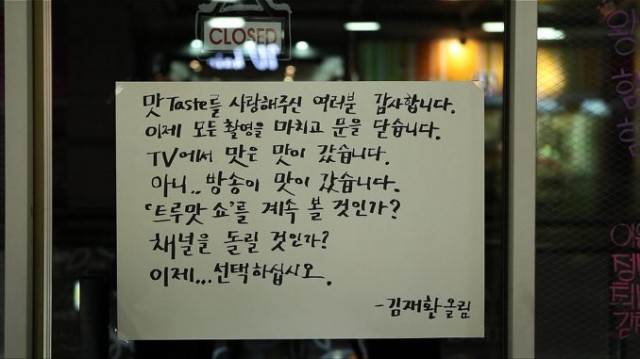 CLOSED
맛Taste를 사랑해주신 여러분 감사합니다.
이제 모든 촬영을 마치고 문을 닫습니다.
TV에서 맛은 맛이 갔습니다.
아니.. 방송이 맛이 갔습니다.
'트루맛 쇼'를 계속 볼 것인가?
채널을 돌릴 것인가?
이제... 선택하십시오.
-김재환 올림